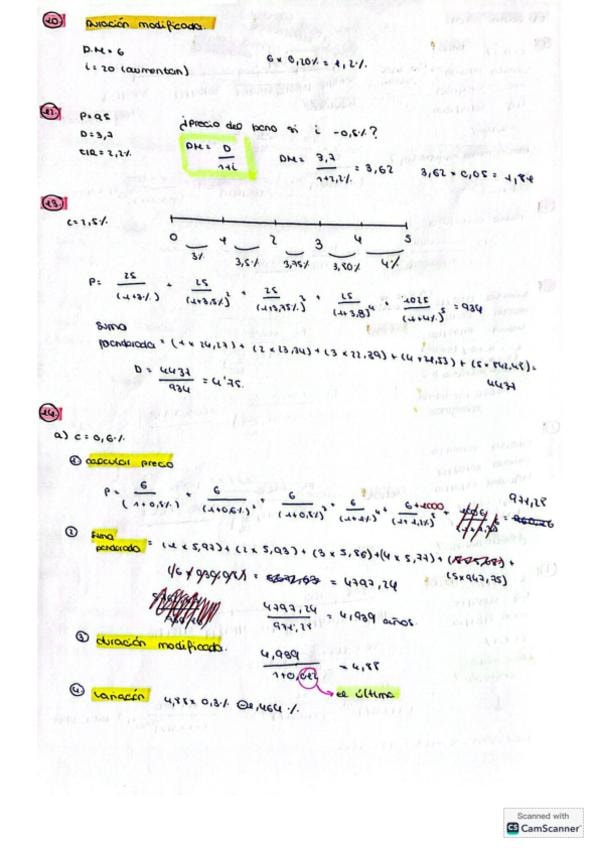 10. Duración modificada.
D.M = 6
i = 20 (aumentan)
6 x 0,20% = 1,2%
P = 95
D = 3,7
TIR = 2,2%
¿Precio del bono si i -0,5%?
DM = D / 1+i
DM = 3,7 / 1+2,2% = 3,62
13.
c = 2,5%
0 1 2 3 4 5
3% 3,5% 3,75% 3,80% 4%
P = 25 / (1+3%) + 25 / (1+3,5%)² + 25 / (1+3,75%)³ + 25 / (1+3,8)⁴ + 1025 / (1+4%)⁵ = 934
Suma
ponderada = (1 x 24,27) + (2 x 23,34) + (3 x 22,39) + (4 x 21,53) + (5 x 842,45) =
4437
D = 4437 / 934 = 4'75.
14.
a) c = 0,6%
① calcular precio
② Suma
ponderada = (1 x 5,97) + (2 x 5,93) + (3 x 5,86) + (4 x 5,77) +
(5 x 947,75)
= 4797,24
4797,24 / 971,28 = 4,939 años.
③ duración modificada.
4,939 / = 4,88
el última
4. variación 4,88 x 0,3%
Scanned with
CS CamScanner